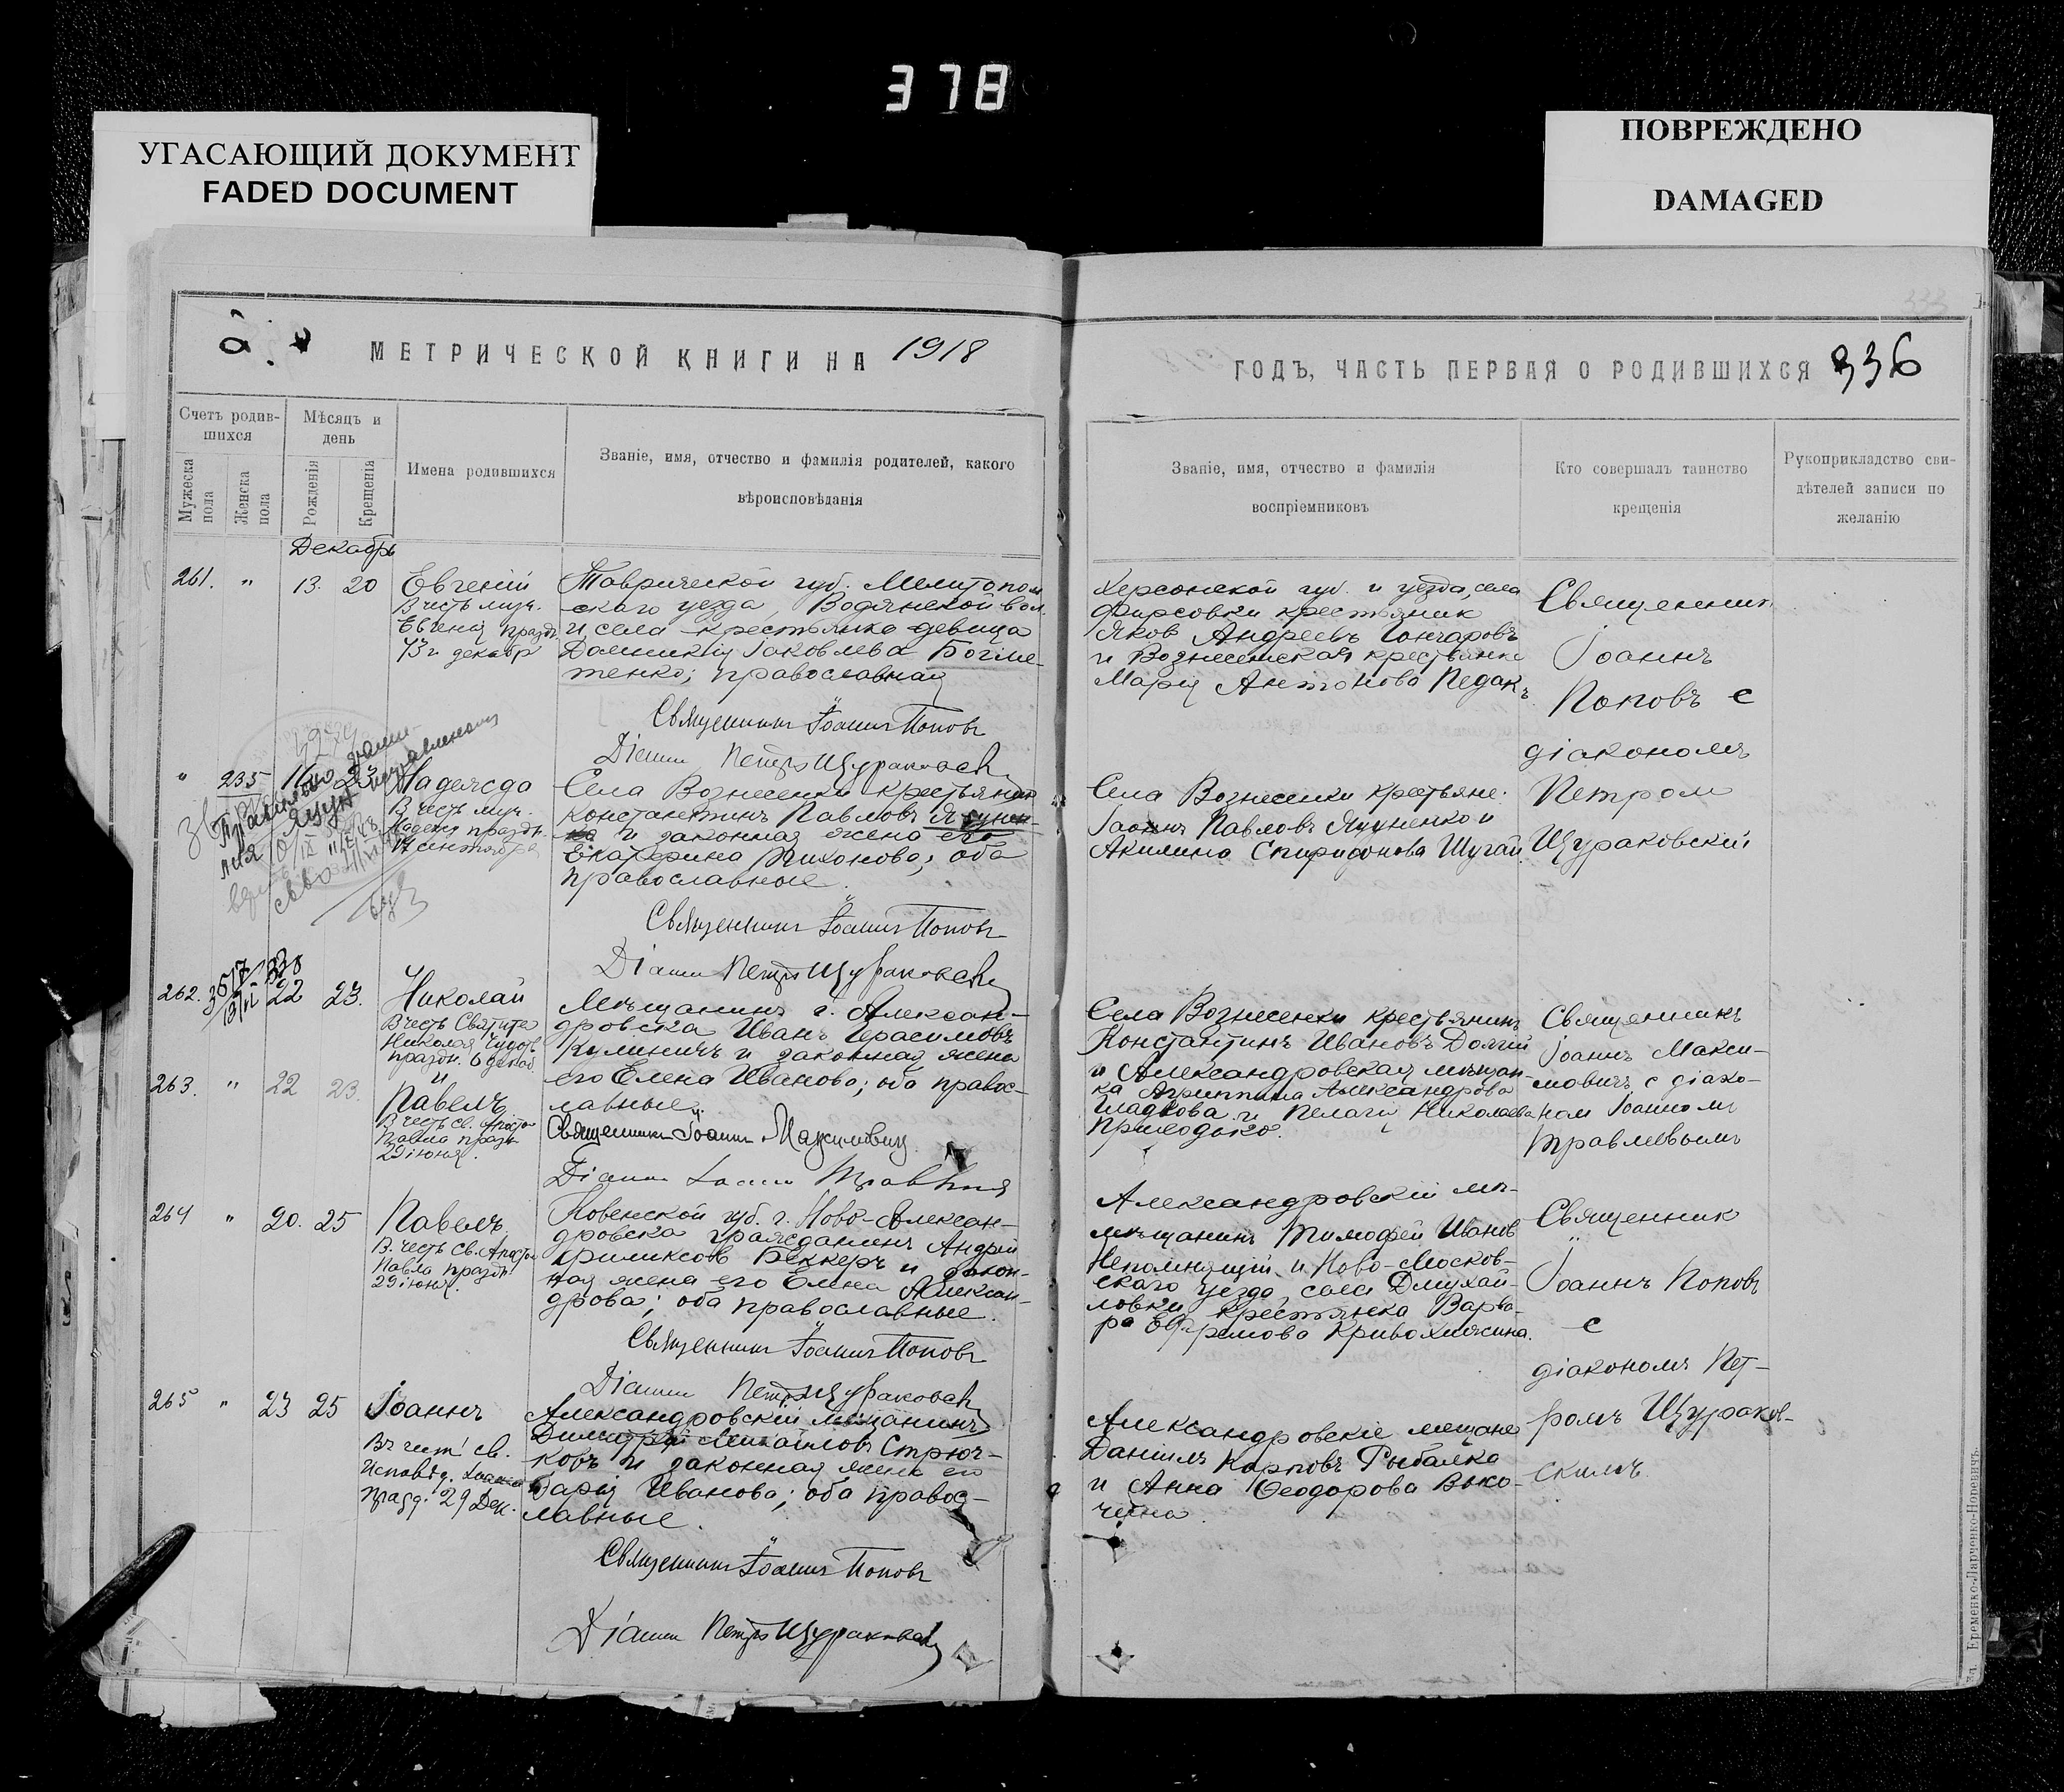 378
УГАСАЮЩИЙ ДОКУМЕНТ
FADED DOCUMENT
ПОВРЕЖДЕНО
DAMAGED
МЕТРИЧЕСКОЙ КНИГИ НА 1918
ГОДЪ, ЧАСТЬ ПЕРВАЯ О РОДИВШИХСЯ 336
Счетъ родив-
шихся
Мужеска
пола
Женска
пола
Мѣсяцъ и
день
Рожденія
Крещенія
Имена родившихся
Званіе, имя, отчество и фамилія родителей, какого
вѣроисповѣданія
Званіе, имя, отчество и фамилія
воспріемниковъ
Кто совершалъ таинство
крещенія
Рукоприкладство сви-
дѣтелей записи по
желанію
Декабрь
261. " 13. 20
Евгеній
В честь муч.
Евгенія праздн.
13 г. декабр
Таврической губ. Мелитополь
скаго уезда, Водянской вол.
и села крестьянка девица
Домникія Іаковлева Богме-
тенко; православная
Священникъ Іоаннъ Поповъ
Діаконъ Петръ Щураковскій
Херсонской губ. и уезда, села
Фирсовки крестьяник
Яков Андреевъ Гончаровъ
и Вознесенская крестьянка
Марія Антонова Педак
Священник
Іоаннъ
Поповъ с
діакономъ
Петром
Щураковскій
" 235 16 23
Надежда
В честь муч.
Надежд праздн.
17 сентября
Села Вознесенки крестьянин
Константинъ Павловъ Яцунен-
ко и законная жена его
Екатерина Тихонова; оба
православные.
Священникъ Іоаннъ Поповъ
Діаконъ Петръ Щураковскій
Села Вознесенки крестьяне:
Іоаннъ Павловъ Яцуненко и
Акилина Спиридонова Шугай
262. 22 23.
Николай
В честь Святите
Николая Чудотв.
праздн. 6 декаб.
и
263. " 22 23.
Павелъ
В честь св. Апосто
Павла праздн
29 іюня.
Мѣщанинъ г. Алексан-
дровска Иванъ Герасимовъ
Кулиничъ и законная жена
его Елена Иванова; оба правос-
лавные.
Священникъ Іоаннъ Максимовичъ
Діаконъ Іоаннъ
Села Вознесенки крестьянинъ
Константинъ Ивановъ Долгій
и Александровская мѣщан-
ка Агриппина Александрова
Гладкова и Пелагія Николаева
Приходько.
Священникъ
Іоаннъ Макси-
мовичъ с діако-
ном Іоанномъ
Травлевымъ
264 " 20. 25
Павелъ
В честь св. Апосто
Павла праздн
29 іюня.
Ковенской губ. г. Ново-Алексан-
дровска гражданинъ Андрей
Феликсовъ Беккеръ и закон-
ная жена его Елена Алексан-
дрова; оба православные.
Священникъ Іоаннъ Поповъ
Діаконъ Петръ Щураковскій
Александровскій мѣ-
мѣщанинъ Тимофей Иванов
Непомнящій и Ново-Москов-
скаго уезда, села Дмухай-
ловки крестьянка Варва-
ра Ефремова Кривохижина.
Священник
Іоаннъ Поповъ
с
діакономъ Пет-
ромъ Щураков-
скимъ.
265 " 23 25
Іоаннъ
Въ чест св.
Исповѣд. Іоанна
празд. 29 Дек.
Александровскій мещанинъ
Димитрій Михайловъ Стрюч-
ковъ и законная жена его
Дарія Иванова; оба правос-
лавные.
Священникъ Іоаннъ Поповъ
Діаконъ Петръ Щураковскій
Александровскіе мещане
Даніилъ Карповъ Рыбалка
и Анна Феодорова Воко-
чина.
Еременко-Ларченко-Норевичъ.